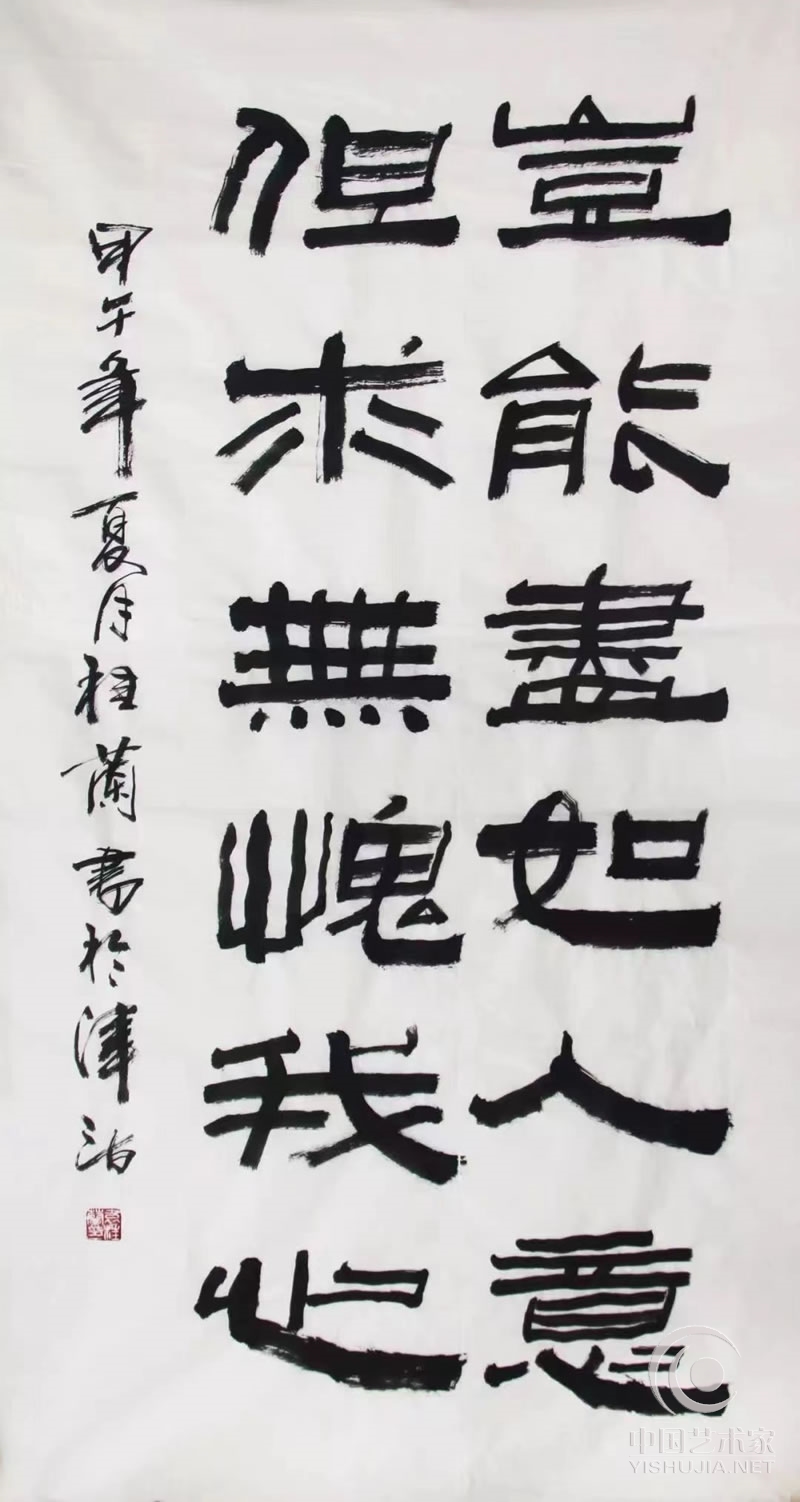 豈能盡如人意
但求無愧我心
甲午年夏月桂蘭書於津沽
中国艺术家
YISHUJIA.NET